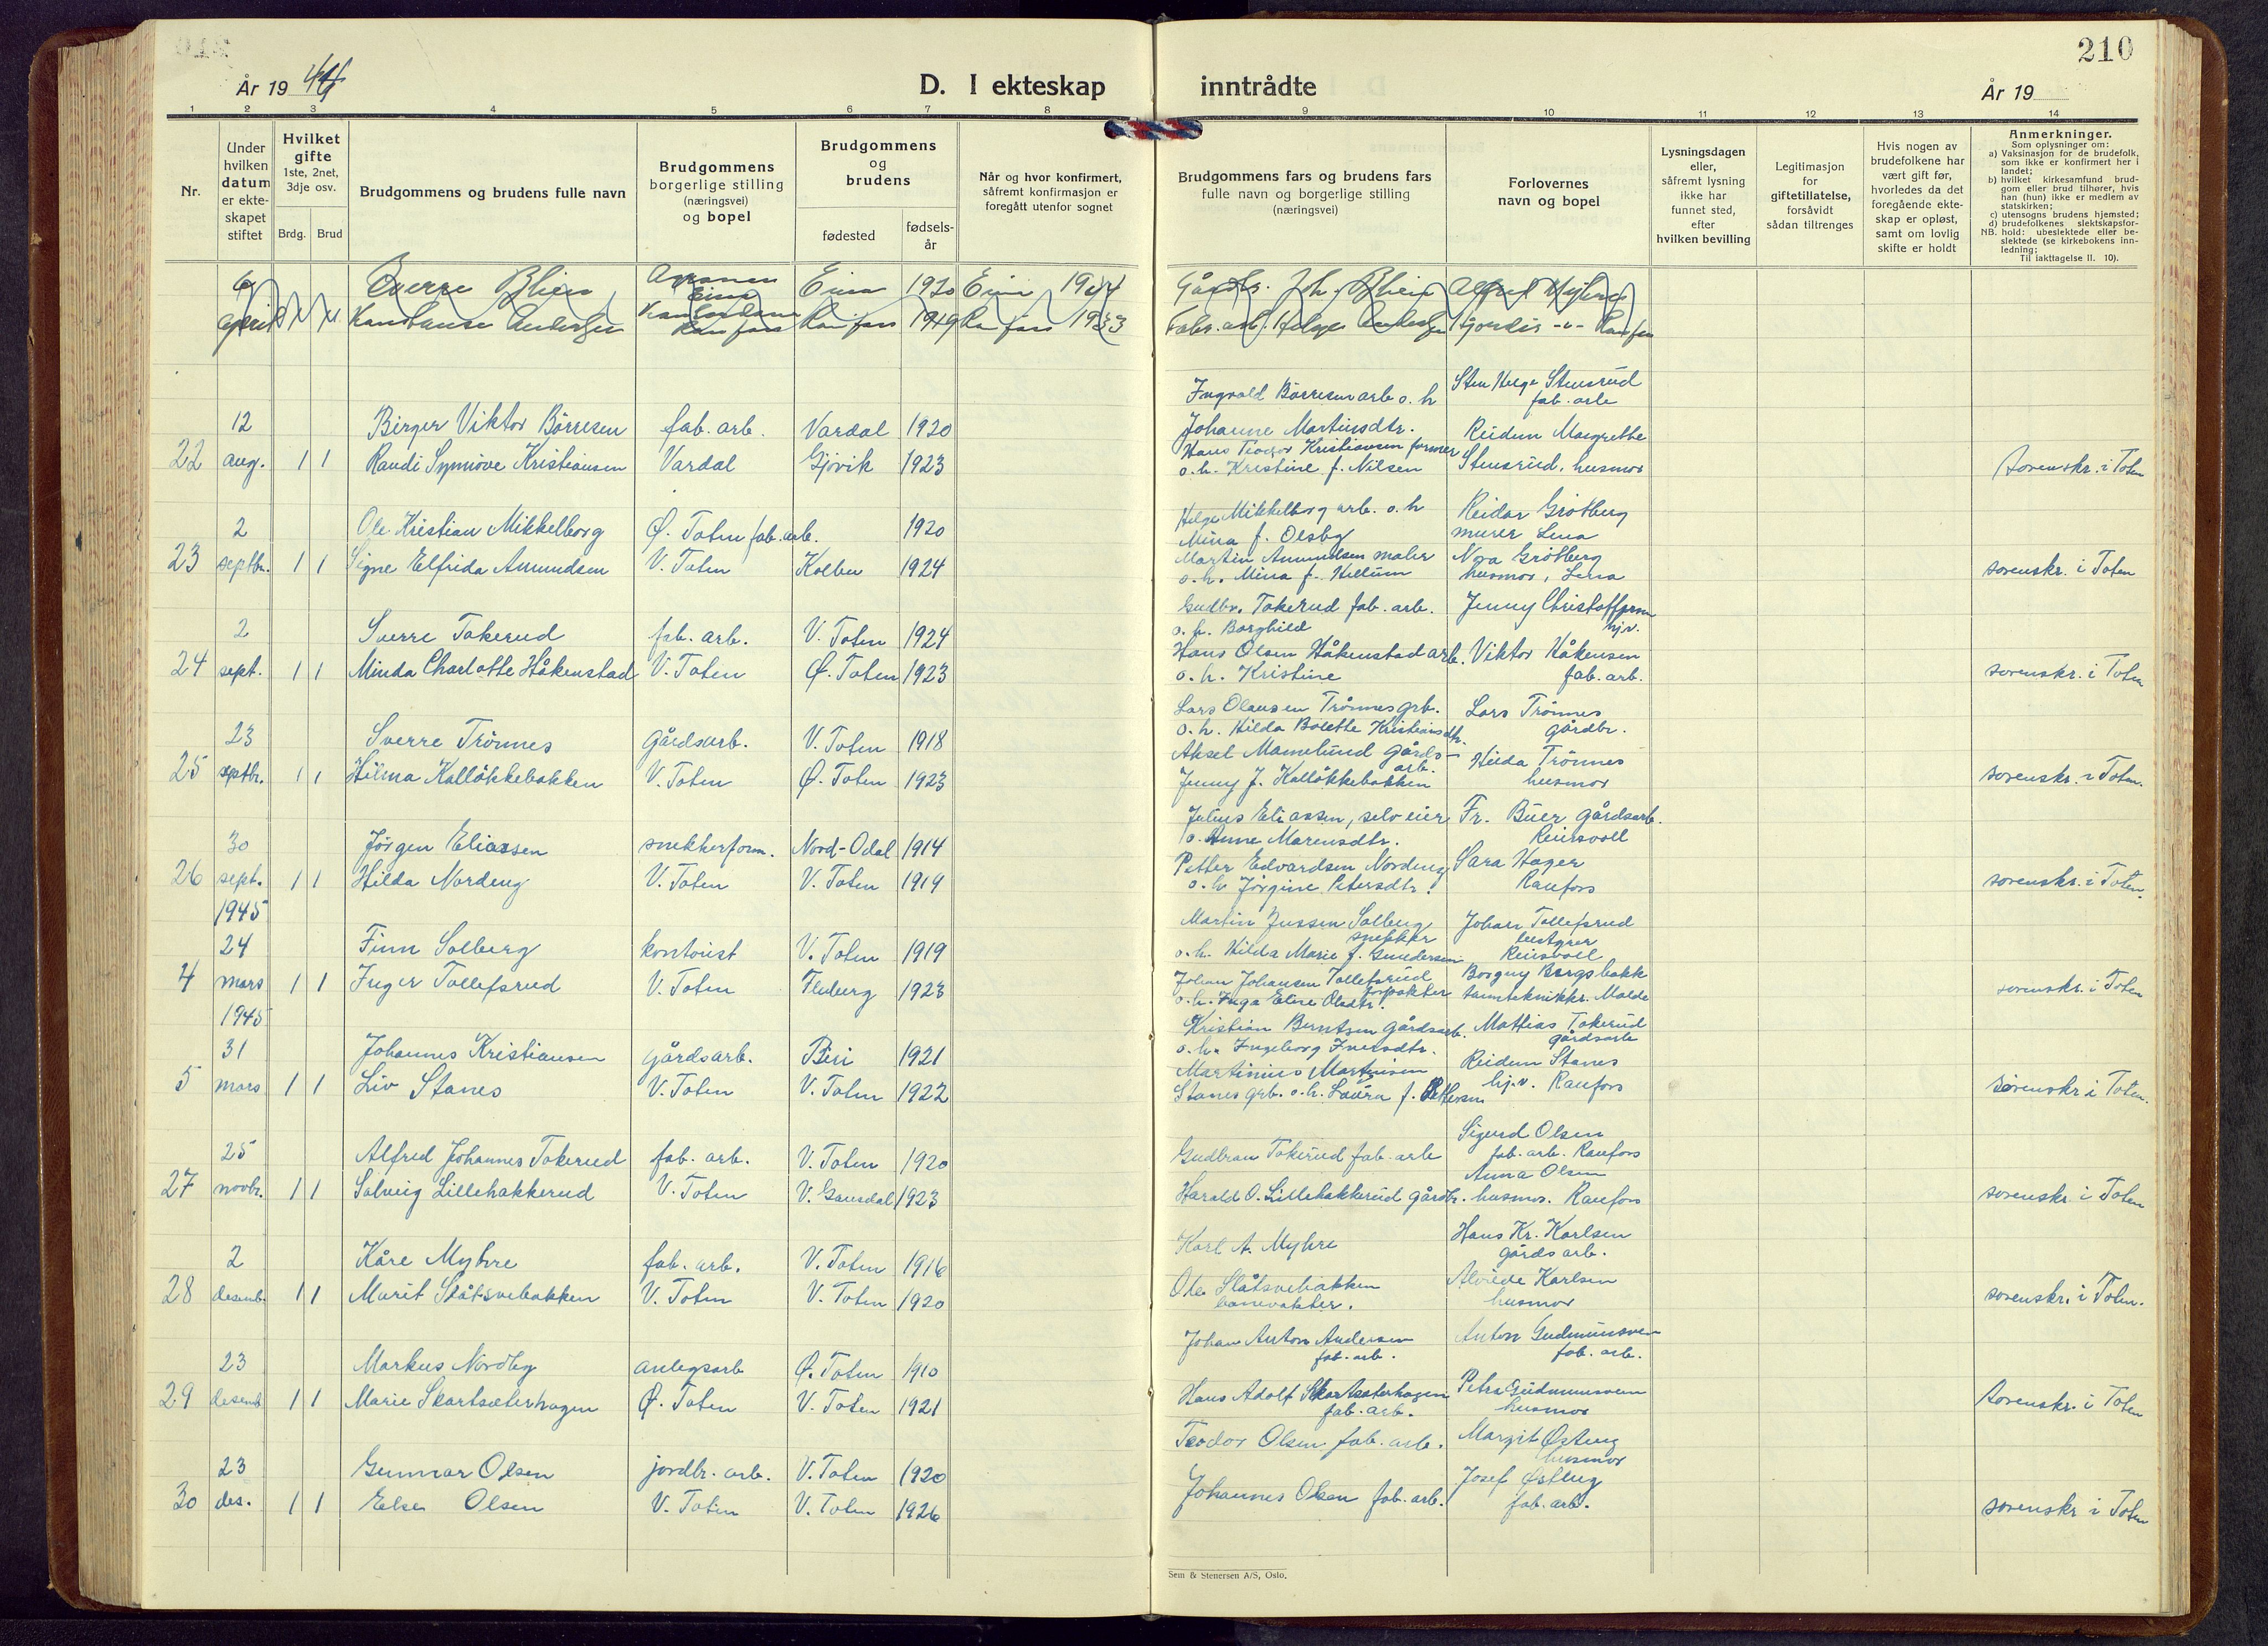 210
År 19 44
D. I ekteskap inntrådte
År 19
1 2 3 4 5 6 7 8 9 10 11 12 13 14
Nr.
Under hvilken datum er ekte-skapet stiftet
Hvilket gifte 1ste, 2net, 3dje osv.
Brdg. Brud
Brudgommens og brudens fulle navn
Brudgommens borgerlige stilling (næringsvei) og bopel
Brudgommens og brudens
fødested
fødsels-år
Når og hvor konfirmert, såfremt konfirmasjon er foregått utenfor sognet
Brudgommens fars og brudens fars fulle navn og borgerlige stilling (næringsvei)
Forlovernes navn og bopel
Lysningsdagen eller, såfremt lysning ikke har funnet sted, efter hvilken bevilling
Legitimasjon for giftetillatelse, forsåvidt sådan tiltrenges
Hvis nogen av brudefolkene har vært gift før, hvorledes da det foregående ekte-skap er opløst, samt om lovlig skifte er holdt
Anmerkninger.
Som oplysninger om:
a) Vaksinasjon for de brudefolk, som ikke er konfirmert her i landet;
b) hvilket kirkesamfund brud-gom eller brud tilhører, hvis han (hun) ikke er medlem av statskirken;
c) utensogns brudens hjemsted;
d) brudefolkenes slektskapsfor-
NB. hold: ubeslektede eller be-slektede (se kirkebokens inn-ledning;
Til iakttagelse II. 10).
6 Sverre Blien Eina 1920 Eina Gårdbr. Joh. Blien Alfred Myhre
april Konstanse Andersen Raufoss Raufoss 1919 Raufoss 1933 Fabr. arb. Helge Andersen Hjordis -"- Raufoss
Ingvald Börresen arb o. h Sten Helge Stensrud
fab. arb
12 Birger Viktor Börresen fab. arb. Vardal 1920 Johanne Martinsdtr. Reidun Margrethe
22 aug. 1 1 Randi Synnöve Kristiansen Vardal Gjövik 1923 Hans Teodor Kristiansen former Stensrud, husmor sorenskr. i Toten
o. h. Kristine f. Nilsen
Helge Mikkelborg arb. o. h Reidar Grötberg
2 Ole Kristian Mikkelborg Ø. Toten fab. arb. 1920 Mina f. Olsby murer Lena
23 septbr. 1 1 Signe Elfrida Amundsen V. Toten Kolbu 1924 Martin Amundsen maler Nora Grötberg
o. h. Mina f. Hellum husmor, Lena sorenskr. i Toten
Gudbr. Tokerud fab. arb. Jenny Christoffersen
2 Sverre Tokerud fab. arb. V. Toten 1924 o. h. Borghild hj.v.
24 sept. 1 1 Minda Charlotte Håkenstad V. Toten Ø. Toten 1923 Hans Olsen Håkenstad arb. Viktor Håkensen
o. h. Kristine fab. arb. sorenskr. i Toten
Lars Olausen Trönnes grb. Lars Trönnes
23 Sverre Trönnes gårdsarb. V. Toten 1918 o. h. Hilda Bolette Kristiansdtr. gårdbr.
25 septbr. 1 1 Hilma Kallökkebakken V. Toten Ø. Toten 1923 Aksel Mamelund gårds-arb. Hilda Trönnes
Jenny J. Kallökkebakken husmor sorenskr. i Toten.
Julius Eliassen, selveier Fr. Buer gårdsarb.
30 Jörgen Eliassen snekkerform. Nord-Odal 1914 o. Anne Marensdtr. Reinsvoll
26 sept. 1 1 Hilda Nordeng V. Toten V. Toten 1919 Petter Edvardsen Nordeng Sara Hager
o. h Jörgine Petersdtr. Raufoss sorenskr. i Toten.
1945 Martin Jussen Solberg Johan Tollefsrud
24 Finn Solberg kontorist V. Toten 1919 snekker bestyrer
o. h. Hilda Marie f. Gundersen Reinsvoll
4 mars 1 1 Inger Tollefsrud V. Toten Fluberg 1923 Johan Johansen Tollefsrud Borgny Bergsbakk
o. h. Inga Eline Olsdtr. forpakter tannteknikkr. Molde sorenskr. i Toten
1945 Kristian Berntsen gårdsarb. Mattias Tokerud
31 Johannes Kristiansen gårdsarb. Biri 1921 o. h. Ingeborg Iversdtr. gårdsarb
5 mars 1 1 Liv Stanes V. Toten V. Toten 1922 Martinius Martinsen Reidun Stanes
Stanes grb. o. h. Laura f. Pettersen hj.v. Raufoss sorenskr i Toten.
Sigurd Olsen
25 Alfred Johannes Tokerud fab. arb. V. Toten 1920 Gudbran Tokerud fab. arb fab. arb. Raufoss
Anna Olsen
27 novbr. 1 1 Solveig Lillehakkerud V. Toten V. Gausdal 1923 Harald O. Lillehakkerud gårdbr. husmor. Raufoss sorenskr. i Toten
Hans Kr. Karlsen
2 Kåre Myhre fab. arb. V. Toten 1916 Karl A. Myhre gårdsarb.
28 desemb. 1 1 Marit Slåtsvebakken V. Toten V. Toten 1920 Ole Slåtsvebakken Alvilde Karlsen
banevokter. husmor sorenskr. i Toten.
Johan Anton Andersen Anton Gudmunsven
23 Markus Nordby anlegsarb Ø. Toten 1910 fab. arb. fab. arb.
29 desemb 1 1 Marie Skartsæterhagen Ø. Toten V. Toten 1921 Hans Adolf Skartsæterhagen Petra Gudmunsven
fab. arb. husmor sorenskr. i Toten
Teodor Olsen fab. arb. Margit Østeng
23 Gunnar Olsen jordbr. arb. V. Toten 1920 husmor
30 des. 1 1 Else Olsen V. Toten V. Toten 1926 Johannes Olsen fab. arb. Josef Østeng
fab. arb. sorenskr i Toten
Sem & Stenersen A/S, Oslo.